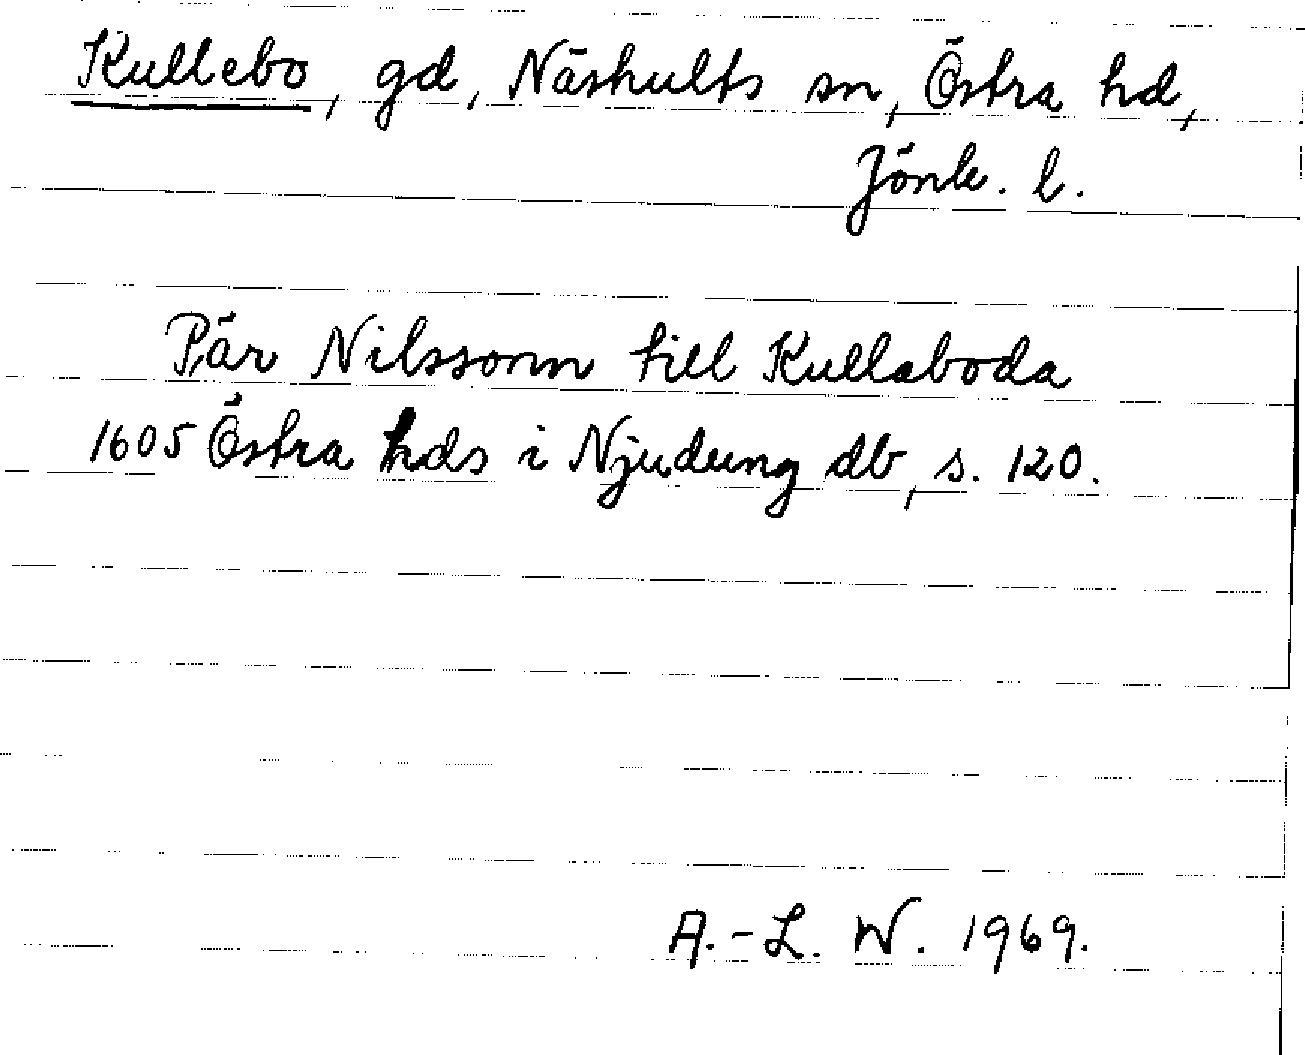 Kullebo, gd, Näshults sn, Östra hd,
Jönk. l.
Pär Nilssonn till Kullaboda
1605 Östra hds i Njudung db, s. 120.
A.-L. W. 1969.